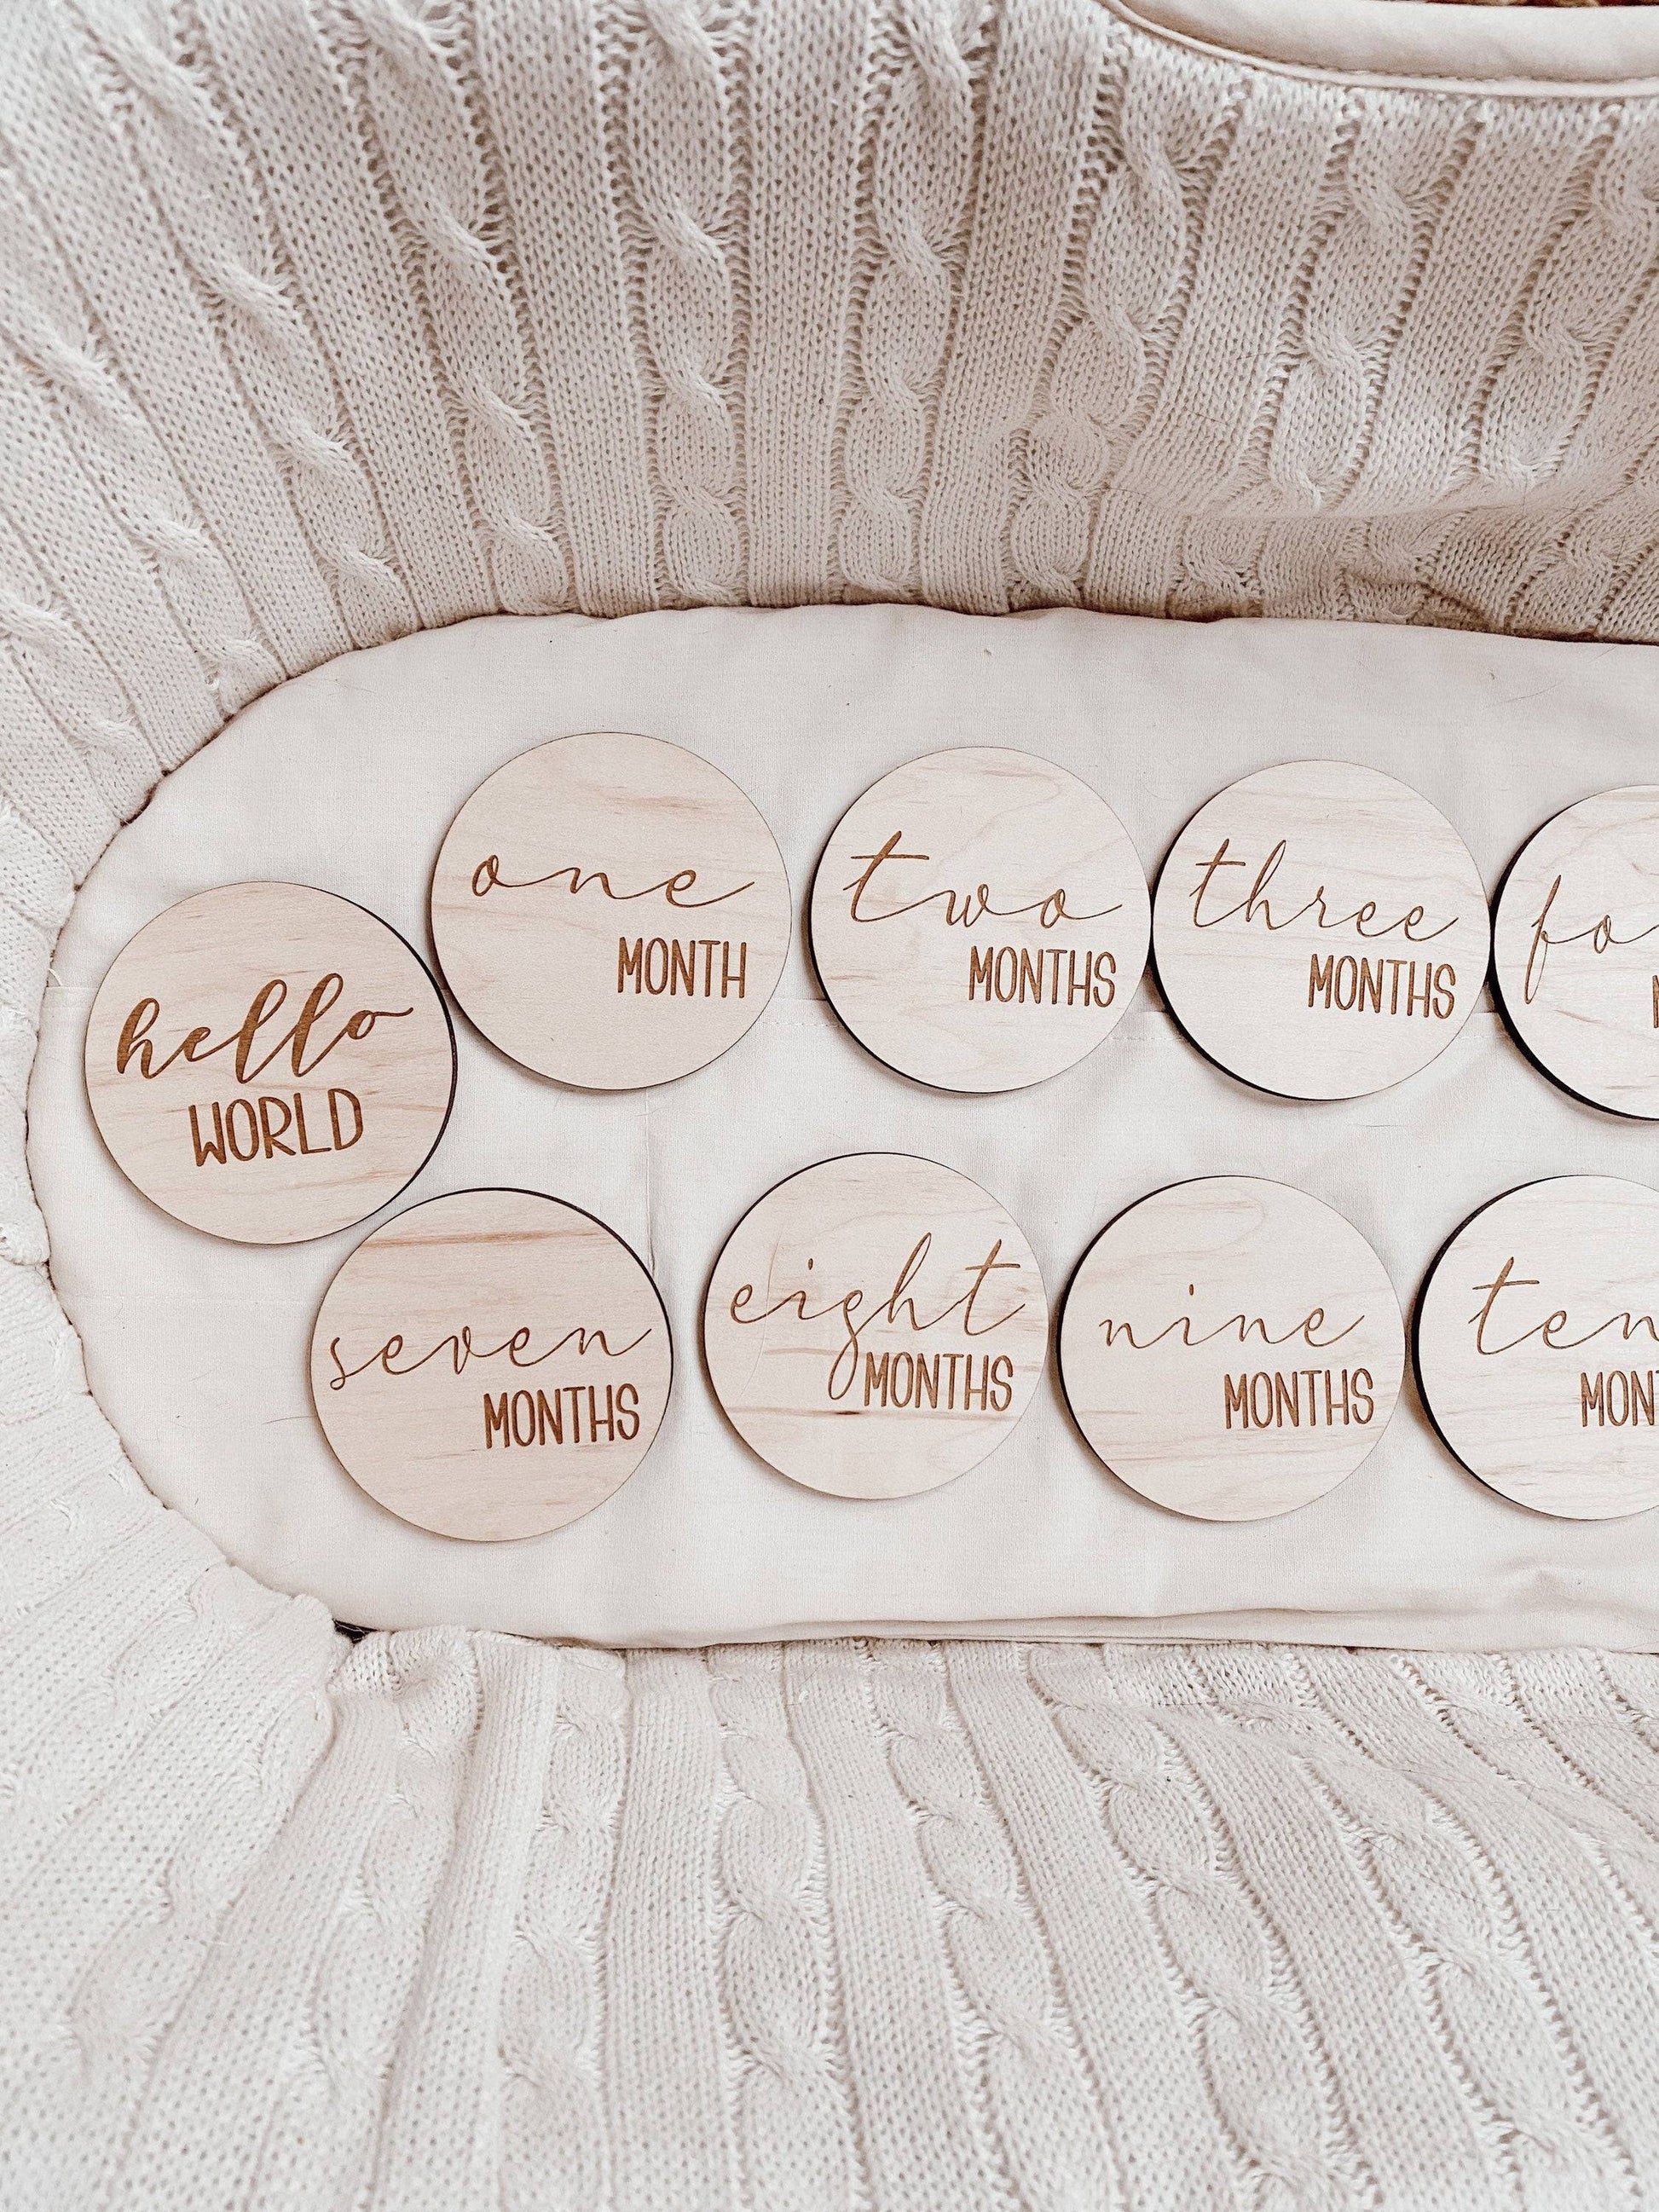 hello
WORLD
one
MONTH
two
MONTHS
three
MONTHS
seven
MONTHS
eight
MONTHS
nine
MONTHS
ten